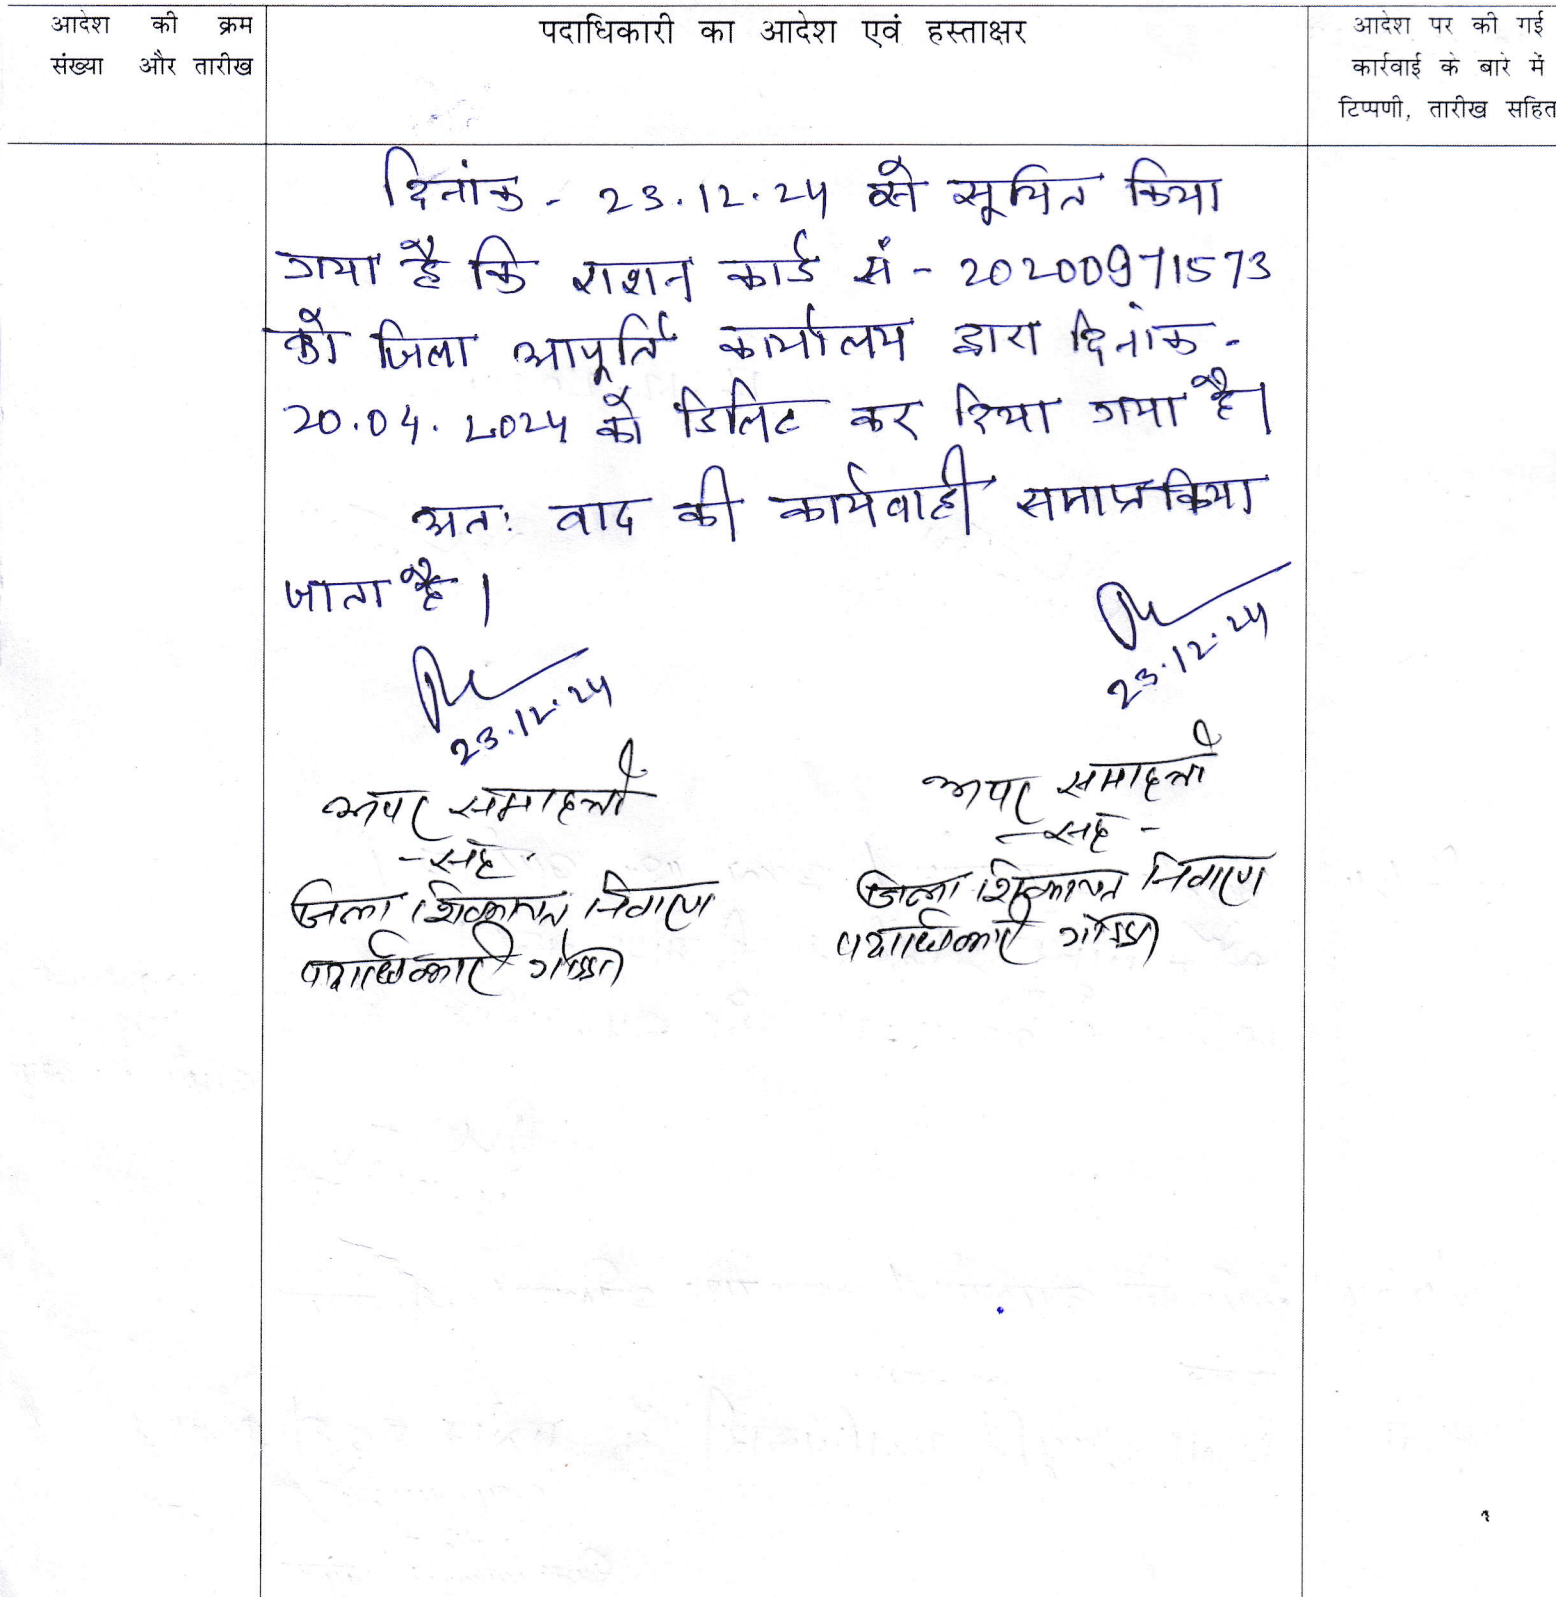 आदेश की क्रम
संख्या और तारीख
पदाधिकारी का आदेश एवं हस्ताक्षर
आदेश पर की गई
कार्रवाई के बारे में
टिप्पणी, तारीख सहित
दिनांक - 23.12.24 से सूचित किया
गया है कि राशन कार्ड सं - 20200971573
को जिला आपूर्ति कार्यालय द्वारा दिनांक -
20.04.2024 को डिलिट कर दिया गया है।
अतः वाद की कार्यवाही समाप्त किया
जाता है।
23.12.24
अपर समाहर्त्ता
- सह -
जिला शिकायत निवारण
पदाधिकारी गोड्डा
23.12.24
अपर समाहर्त्ता
- सह -
जिला शिकायत निवारण
पदाधिकारी गोड्डा